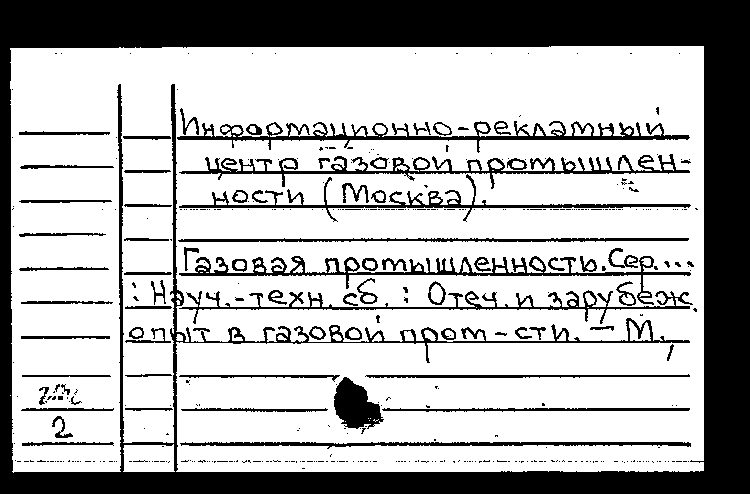 Информационно-рекламный
центр газовой промышлен-
ности (Москва).
Газовая промышленность. Сер....
: Науч.-техн. сб. : Отеч. и зарубеж.
опыт в газовой пром-сти. — М.,
2